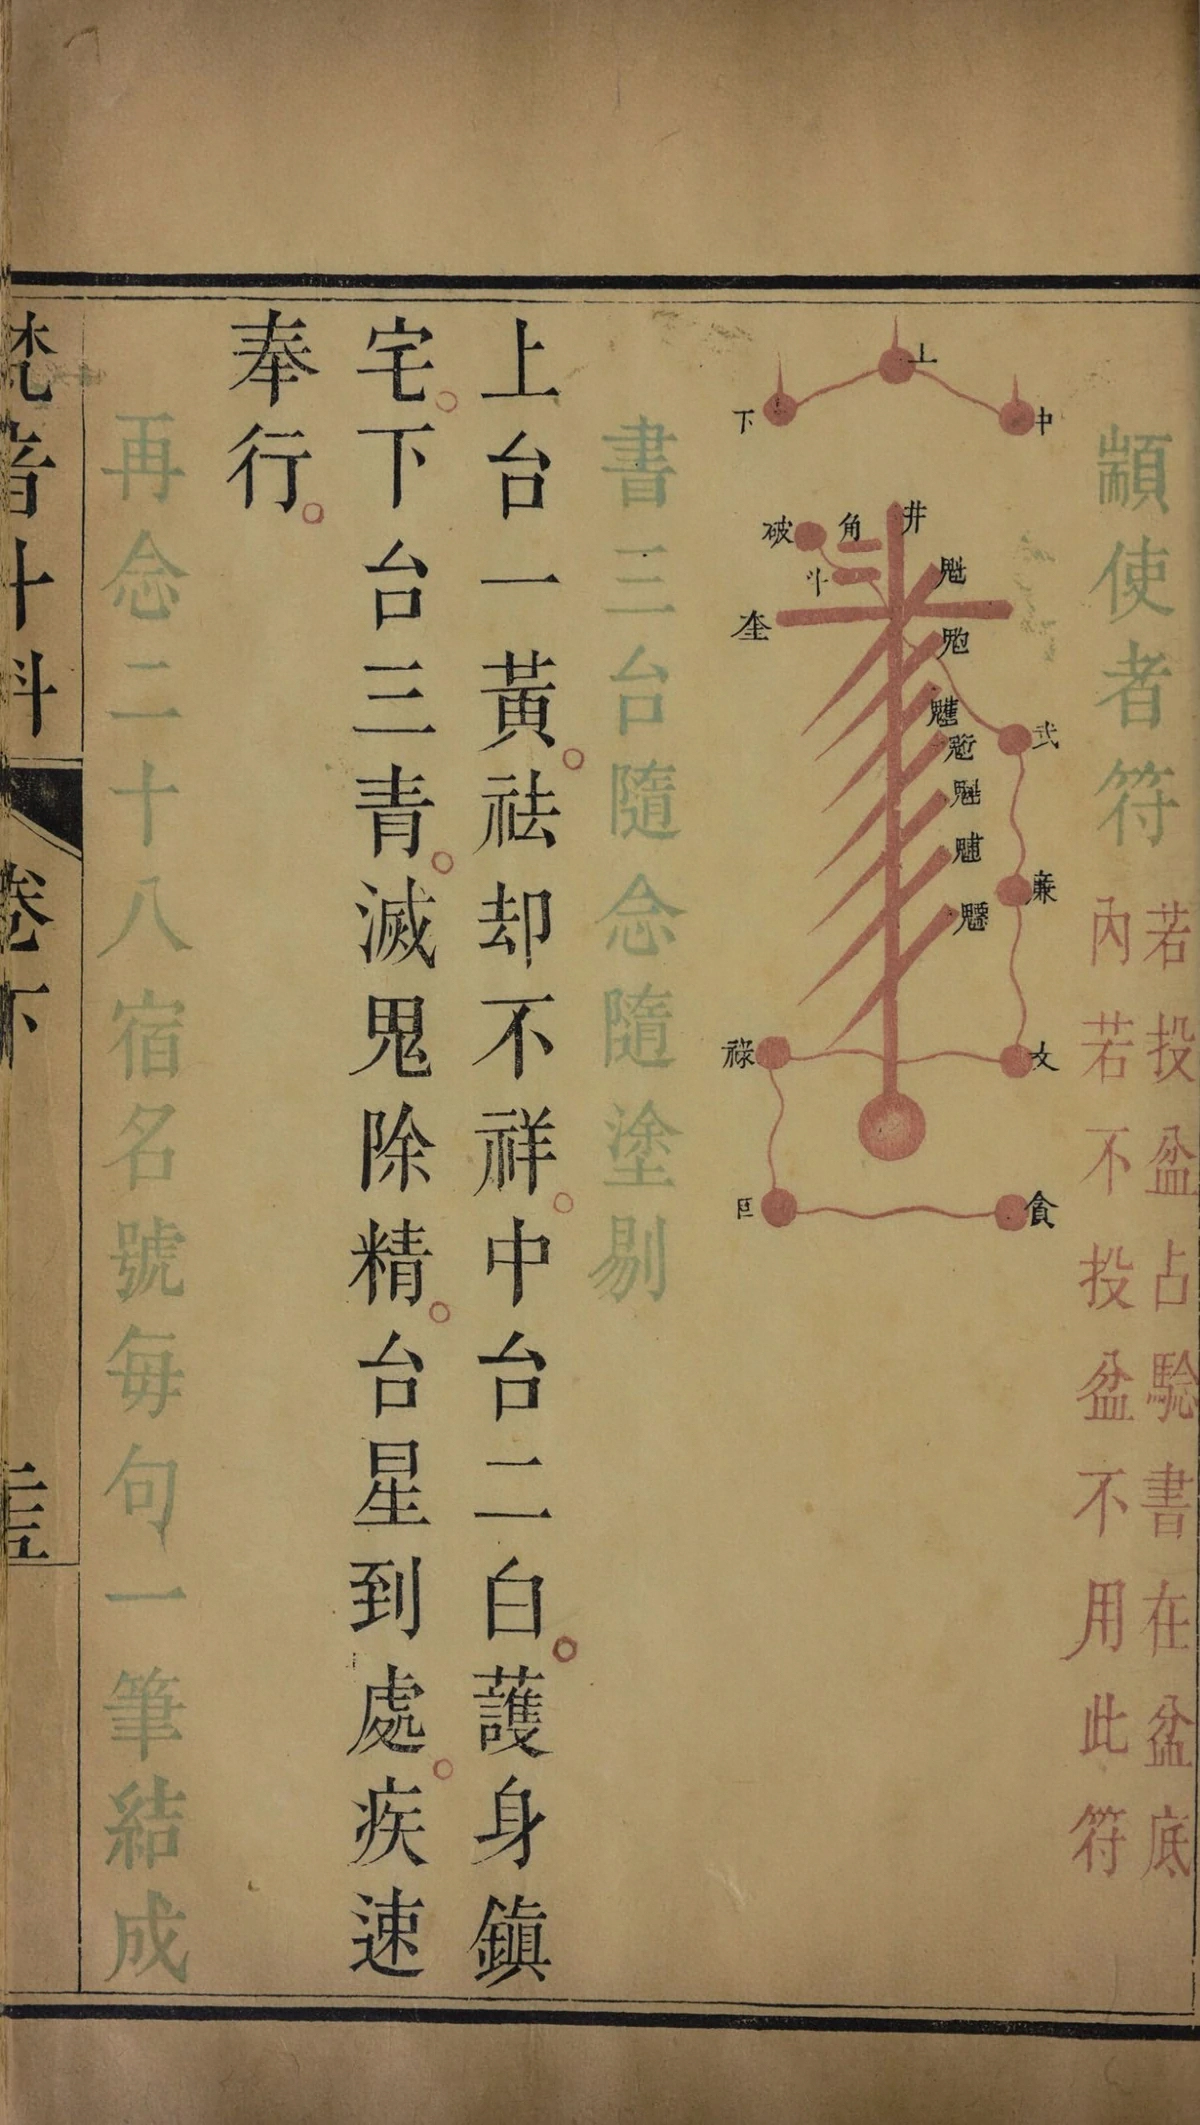 顓使者符
若投盆占驗書在盆底
內若不投盆不用此符
上
中
下
破
角
井
斗
奎
魁
弍
亷
祿
文
巨
貪
書三台隨念隨塗剔
上台一黃。祛却不祥。中台二白。護身鎮
宅。下台三青。滅鬼除精。台星到處。疾速
奉行。
再念二十八宿名號每句一筆結成
梵音斗科
卷下